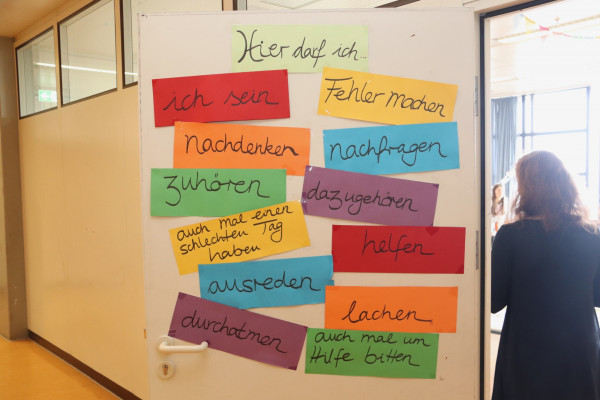 Hier darf ich...
ich sein
Fehler machen
nachdenken
nachfragen
zuhören
dazugehören
auch mal einen
schlechten Tag
haben
helfen
ausreden
lachen
durchatmen
auch mal um
Hilfe bitten